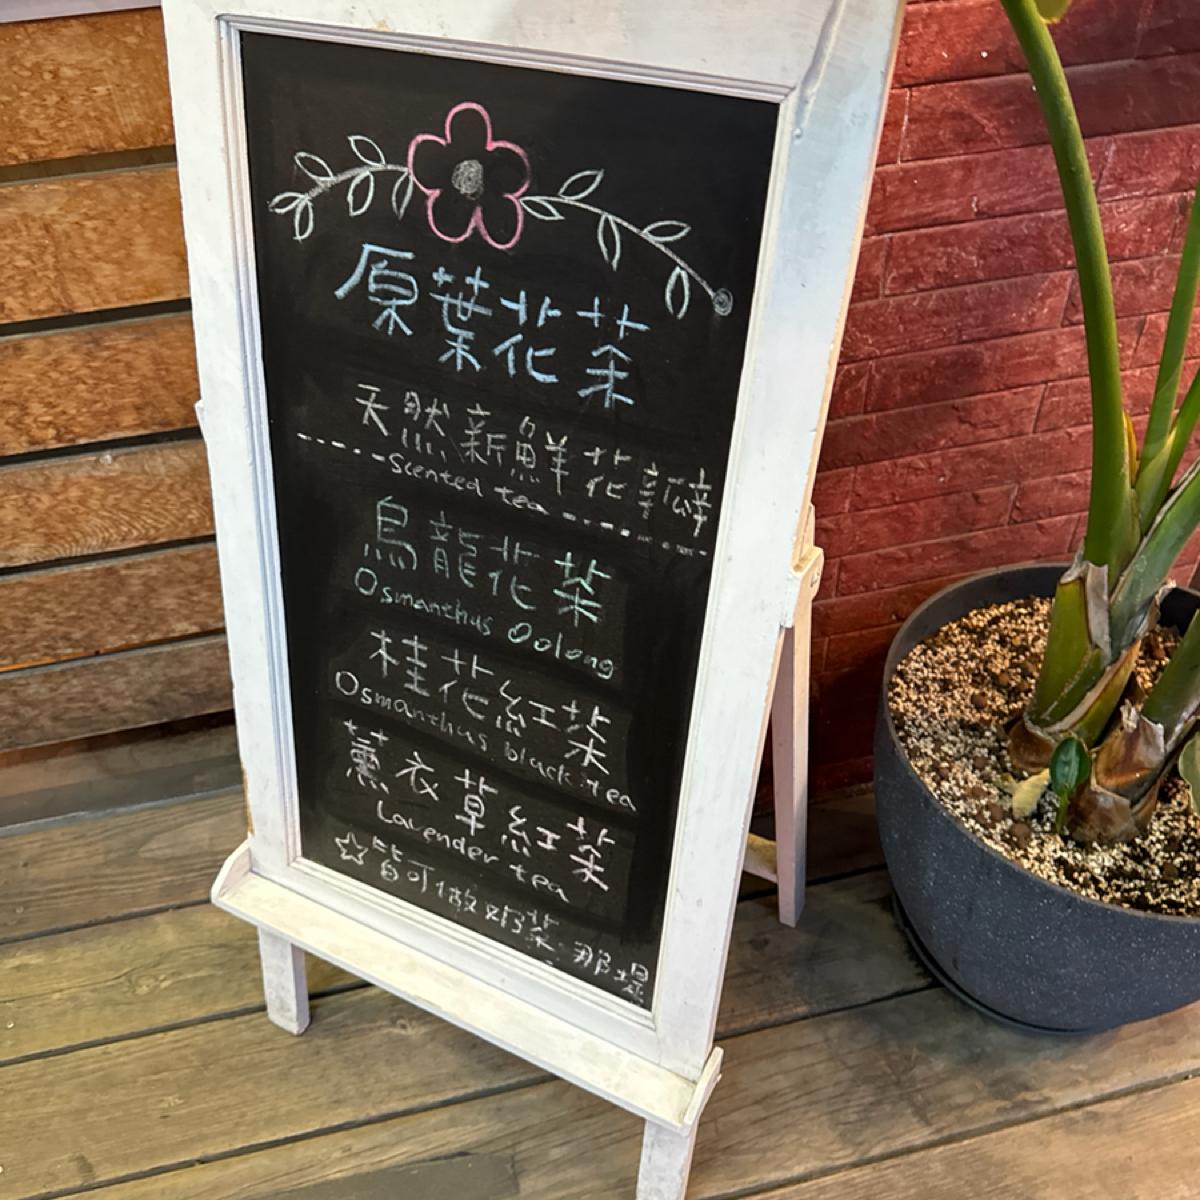 原葉花茶
天然新鮮花瓣
Scented tea
烏龍花茶
Osmanthus Oolong
桂花紅茶
Osmanthus black tea
薰衣草紅茶
Lavender tea
☆皆可做奶茶 那堤